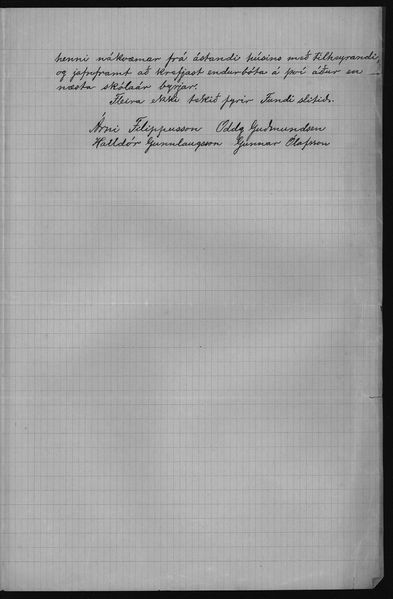 henni nákvæmar frá ástandi húsins með tilheyrandi,
og jafnframt að krefjast endurbóta á því áður en
næsta skólaár byrjar.
Fleira ekki tekið fyrir Fundi slitið.
Árni Filippusson Oddg Guðmundsen
Halldór Gunnlaugsson Gunnar Ólafsson